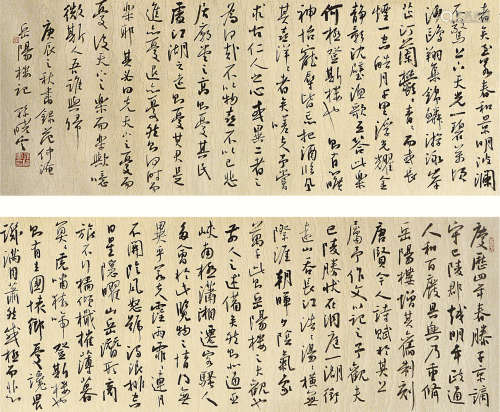 慶歷四年春滕子京謫
守巴陵郡越明年政通
人和百廢具興乃重脩
岳陽樓增其舊制刻
唐賢今人詩賦於其上
屬予作文以記之予觀夫
巴陵勝狀在洞庭一湖銜
遠山吞長江浩浩湯湯橫無
際涯朝暉夕陰氣象
萬千此則岳陽樓之大觀也
前人之述備矣然則北通巫
峽南極瀟湘遷客騷人
多會於此覽物之情得無
異乎若夫霪雨霏霏連月
不開陰風怒號濁浪排空
日星隱曜山岳潛形商
旅不行檣傾楫摧薄暮
冥冥虎嘯猿啼登斯樓也
則有去國懷鄉憂讒畏
譏滿目蕭然感極而悲
者矣至若春和景明波瀾
不驚上下天光一碧萬頃
沙鷗翔集錦鱗游泳岸
芷汀蘭郁郁青青而或長
煙一空皓月千里浮光耀金
靜影沈璧漁歌互答此樂
何極登斯樓也則有心曠
神怡寵辱皆忘把酒臨風
其喜洋洋者矣嗟夫予嘗
求古仁人之心或異二者之
為何哉不以物喜不以己悲
居廟堂之高則憂其民
處江湖之遠則憂其君是
進亦憂退亦憂然則何時而
樂耶其必曰先天下之憂而
憂後天下之樂而樂歟噫
微斯人吾誰與歸
庚辰之秋書錄范仲淹
岳陽樓記 孫曉雲